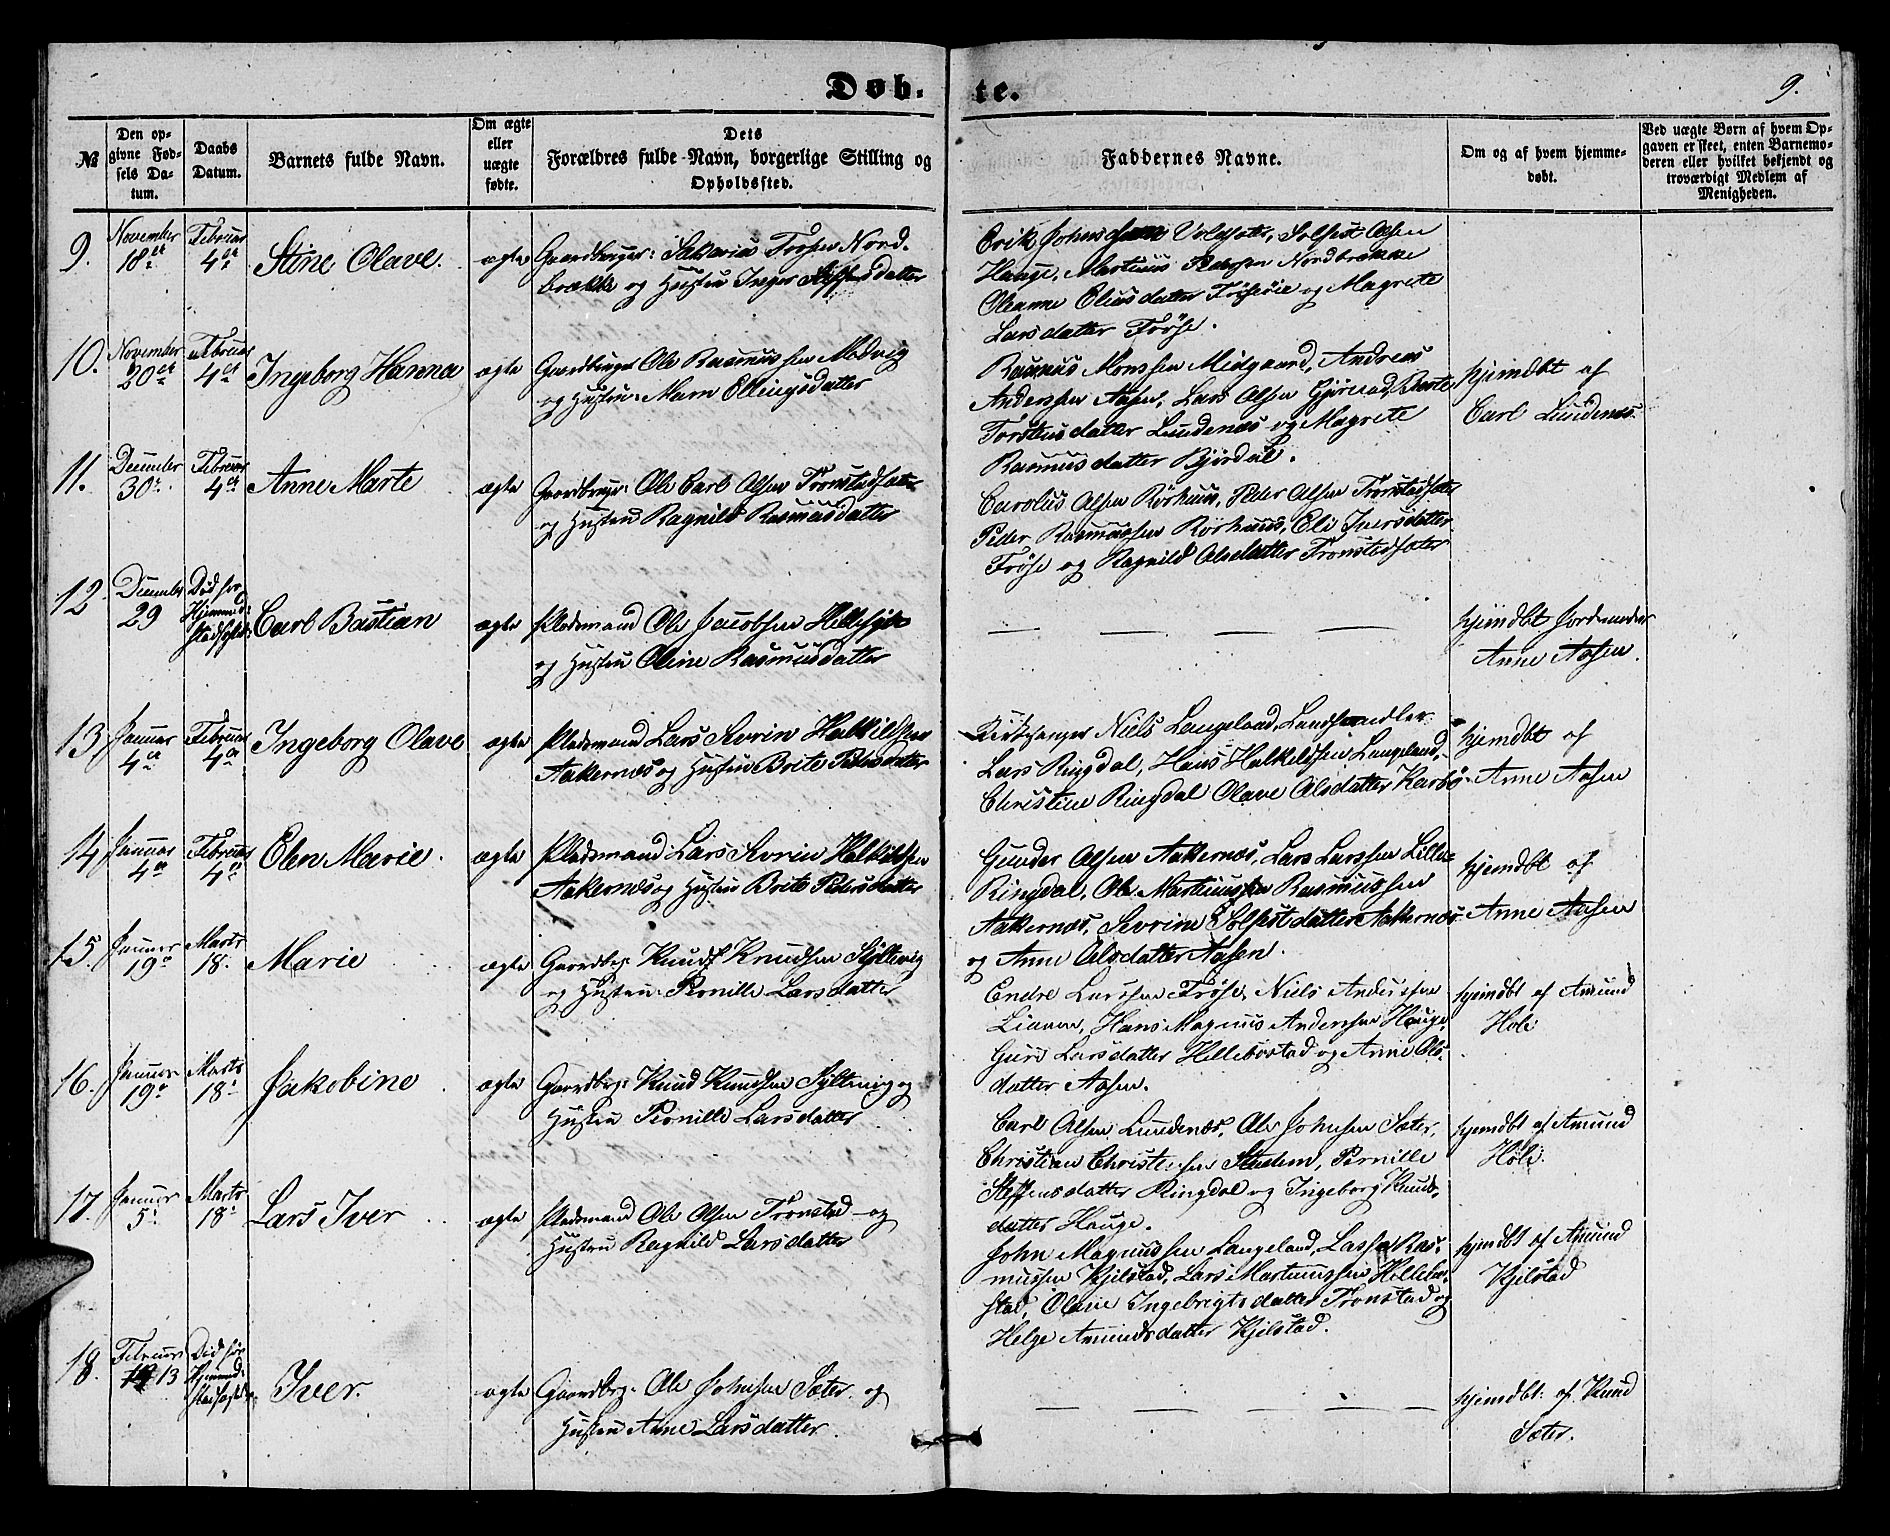 Døb-
te.
9.
№
Den op-
givne Fød-
sels Da-
tum.
Daabs
Datum.
Barnets fulde Navn.
Om ægte
eller
uægte
fødte.
Dets
Forældres fulde Navn, borgerlige Stilling og
Opholdssted.
Faddernes Navne.
Om og af hvem hjemme-
døbt.
Ved uægte Børn af hvem Op-
gaven er skeet, enten Barnemo-
deren eller hvilket bekjendt og
troværdigt Medlem af
Menigheden.
9.
November
18de
Februar
4de
Stine Olave.
ægte
Gaardbruger: Sakarias Nord-
brække og Hustru Inger datter
Erik Johnsen Voldsæter, Solfest Olsen
Hauge, Martinus Pedersen Nordbrække
Oleanne Eliasdatter og Magrete
Larsdatter Frøse.
10.
November
20de
Februar
4de
Ingeborg Hanna
ægte
Gaardbruger Ole Rasmussen Molvig
og Hustru: Marn Ellingsdatter
Rasmus Monssen Midgaard, Andreas
Anderssen Aasen, Lars Olsen Berte
Torstensdatter Lundenæs og Magrete
Rasmusdatter Bjørdal.
hjemdbt af
Carl Lundenæs
11.
December
30te
Februar
4de
Anne Marte
ægte
Gaardbruger: Ole Carl Olsen Tronstadsæter
og Hustru Ragnild Rasmusdatter
Carolus Olsen Rørhuus, Peder Olsen Tronstadsæter
Peder Rasmussen Rørhuus, Eli Iversdatter
Frøse og Ragnild Olsdatter Tronstadsæter
12
December
29
Død før
Hjemmed:
stadfæst:
Carl Bastian
ægte
Pladsmand Ole Jacobsen
og Hustru Oline Rasmusdatter
hjemdbt Jordemoder
Anne Aasen.
13
Januar
4de
Februar
4de
Ingeborg Olave
ægte
Pladsmand Lars Sevrin Halkildsen
Aakernæs og Hustru Brite Pedersdatter
Kirkesanger Niels Langeland, Landhandler
Lars Ringdal, Hans Halkildsen Langeland,
Christine Ringdal Olave Olsdatter Karbø
hjemdbt af
Anne Aasen
14
Januar
4de
Februar
4de
Elen Marie.
ægte
Pladsmand Lars Sevrin Halkildsen
Aakernæs og Hustru Brite Pedersdatter
Gunder Olsen Aakernæs, Lars Larssen Lille-
Ringdal, Ole Martinussen Rasmussen
Aakernæs, Sevrine Solfestdatter Aakernæs
og Anne Olsdatter Aasen.
hjemdbt af
Anne Aasen
15.
Januar
19de
Marts
18.
Marie
ægte
Gaardbrg: Knudt Knudsen Syltevig
og Hustru: Pernille Larsdatter
Endre Larssen Frøse, Niels Anderssen
Liaaen, Hans Magnus Anderssen Hauge,
Guri Larsdatter Hellebostad og Anne Ols-
datter Aasen.
hjemdbt af Amund
Hole
16.
Januar
19de
Marts
18de
Jakobine
ægte
Gaardbrg: Knud Knudsen Syltevig og
Hustru Pernille Larsdatter
Carl Olsen Lundenæs, Ole Johnsen Sæter,
Christian Christensen Pernille
Steffensdatter Ringdal og Ingeborg Knuds-
datter Hauge.
hjemdbt af Amund
Hole.
17.
Januar
5te
Marts
18de
Lars Iver
ægte
Pladsmand Ole Olsen Tronstad og
Hustru Ragnild Larsdatter
John Magnussen Langeland, Lasse Ras-
mussen Kjilstad, Lars Martinussen Hellebo-
stad, Olave Ingebrigtsdatter Tronstad og
Helge Amundsdatter Kjilstad.
hjemdbt af Amund
Kjilstad
18.
Februar
13
Død før
Hjemmed:
stadfæst
Iver.
ægte
Gaardbrg: Ole Johnsen Sæter og
Hustru Anne Larsdatter.
hjemdbt: af Knud
Sæter.